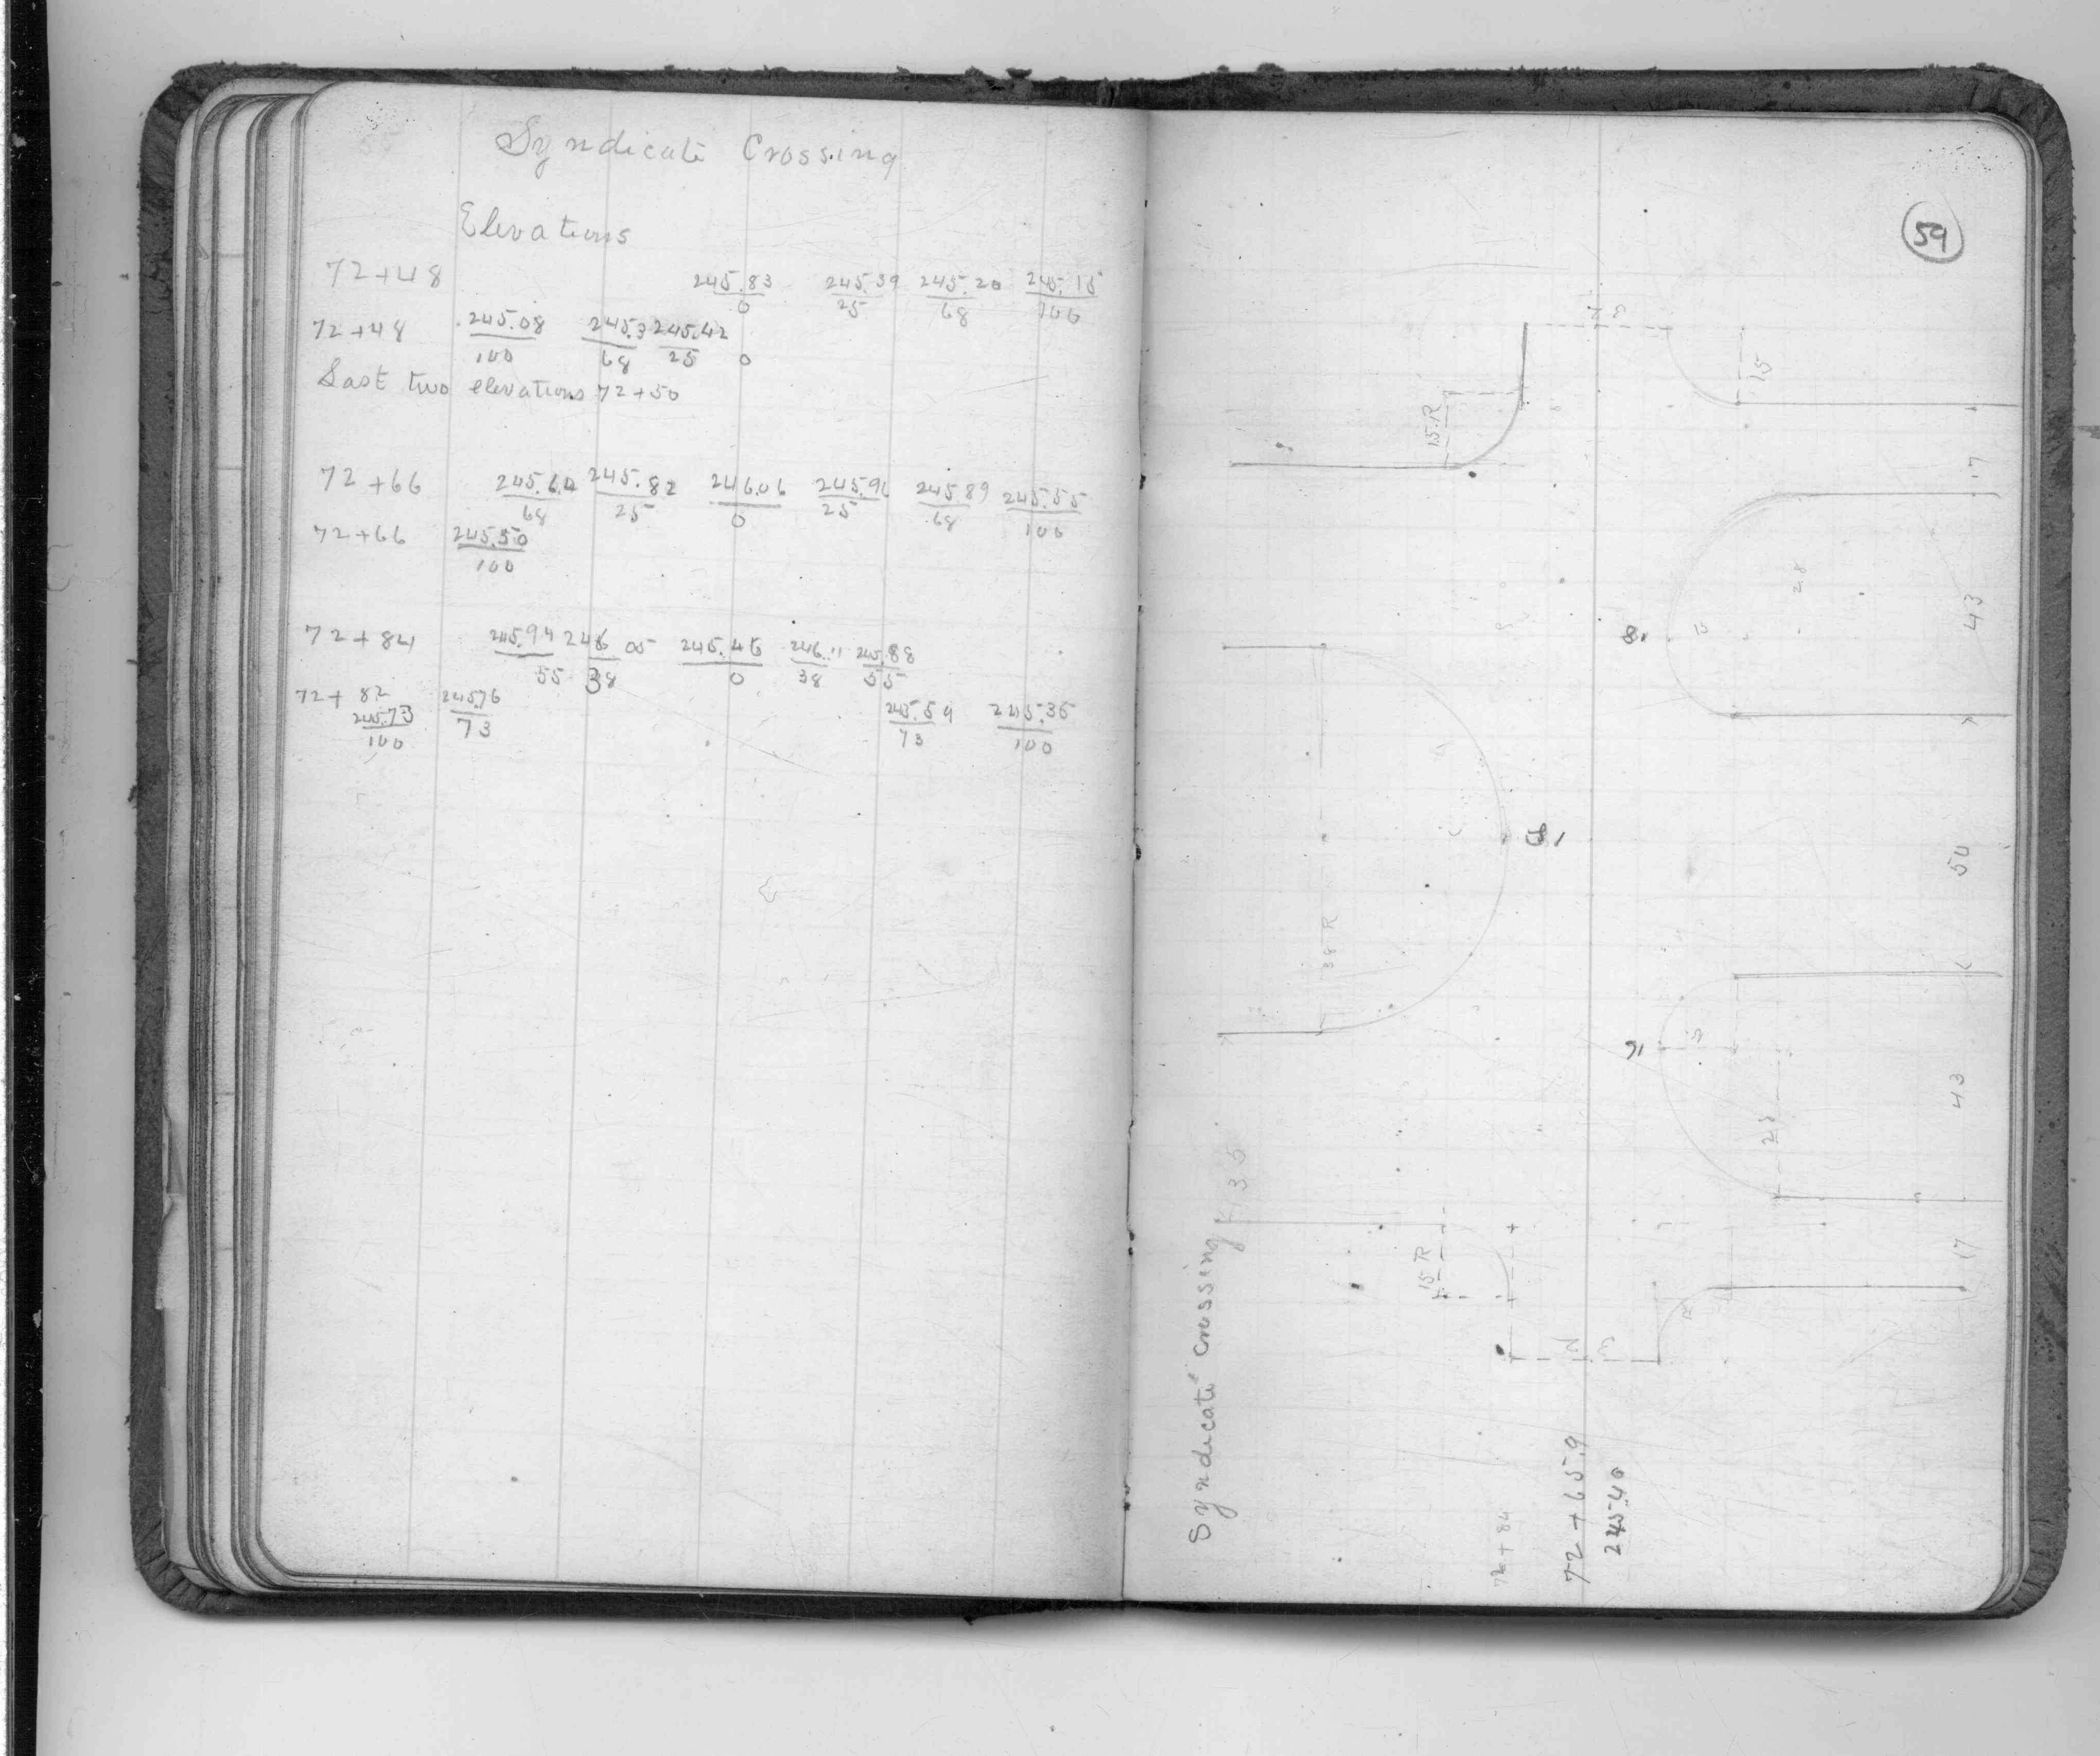 Syndicate Crossing
Elevations
72+48 245.83/0 245.39/25 245.20/68 245.15/100
72+48 245.08/100 245.3/68 245.42/25 0
Last two elevations 72+50
72+66 245.64/68 245.82/25 246.06/0 245.96/25 245.89/68 245.55/100
72+66 245.50/100
72+84 245.94/55 246.05/38 245.46/0 246.11/38 245.88/55
72+82 245.73/100 245.76/73 245.59/73 245.35/100
59
15 R
15
17
28
43
8.
38 R
54
9,
43
28
35
15 R
17
Syndicate crossing
72+84
72+65.9
245.40